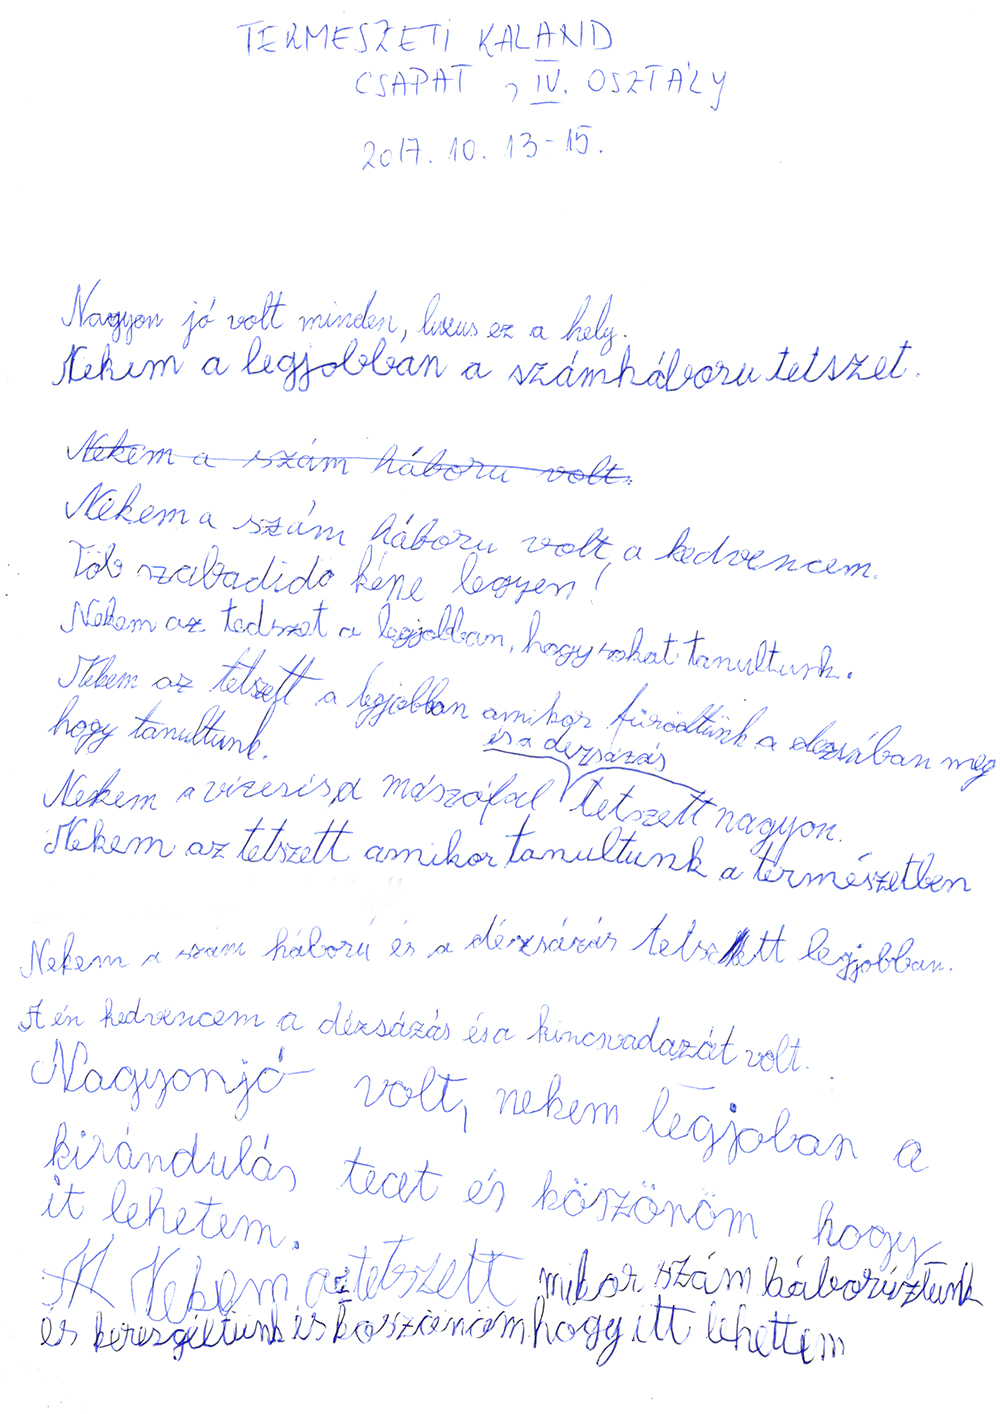 TERMESZETI KALAND
CSAPAT, IV. OSZTÁLY
2017. 10. 13-15.
Nagyon jó volt minden, luxus ez a hely.
Nekem a legjobban a számháboru tetszet.
Nekem a szám háboru volt.
Nekem a szám háboru volt, a kedvencem.
Töb szabadidő kéne legyen!
Nekem az tedszet a legjobban, hogy sokat tanultunk.
Nekem az tetszett a legjobban amikor fürödtünk a dézsában meg
hogy tanultunk.
és a dézsázás
Nekem a vizesés, a mászófal tetszett nagyon.
Nekem az tetszett amikor tanultunk a természetben
Nekem a szám háború és a dézsázás tetszett legjobban.
A én kedvencem a dézsázás és a kincsvadazát volt.
Nagyon jó volt, nekem legjoban a
kirándulás tecet és köszönöm hogy
it lehetem.
Nekem az tetszett mikor szám háborúztunk
és köszönöm hogy itt lehettem